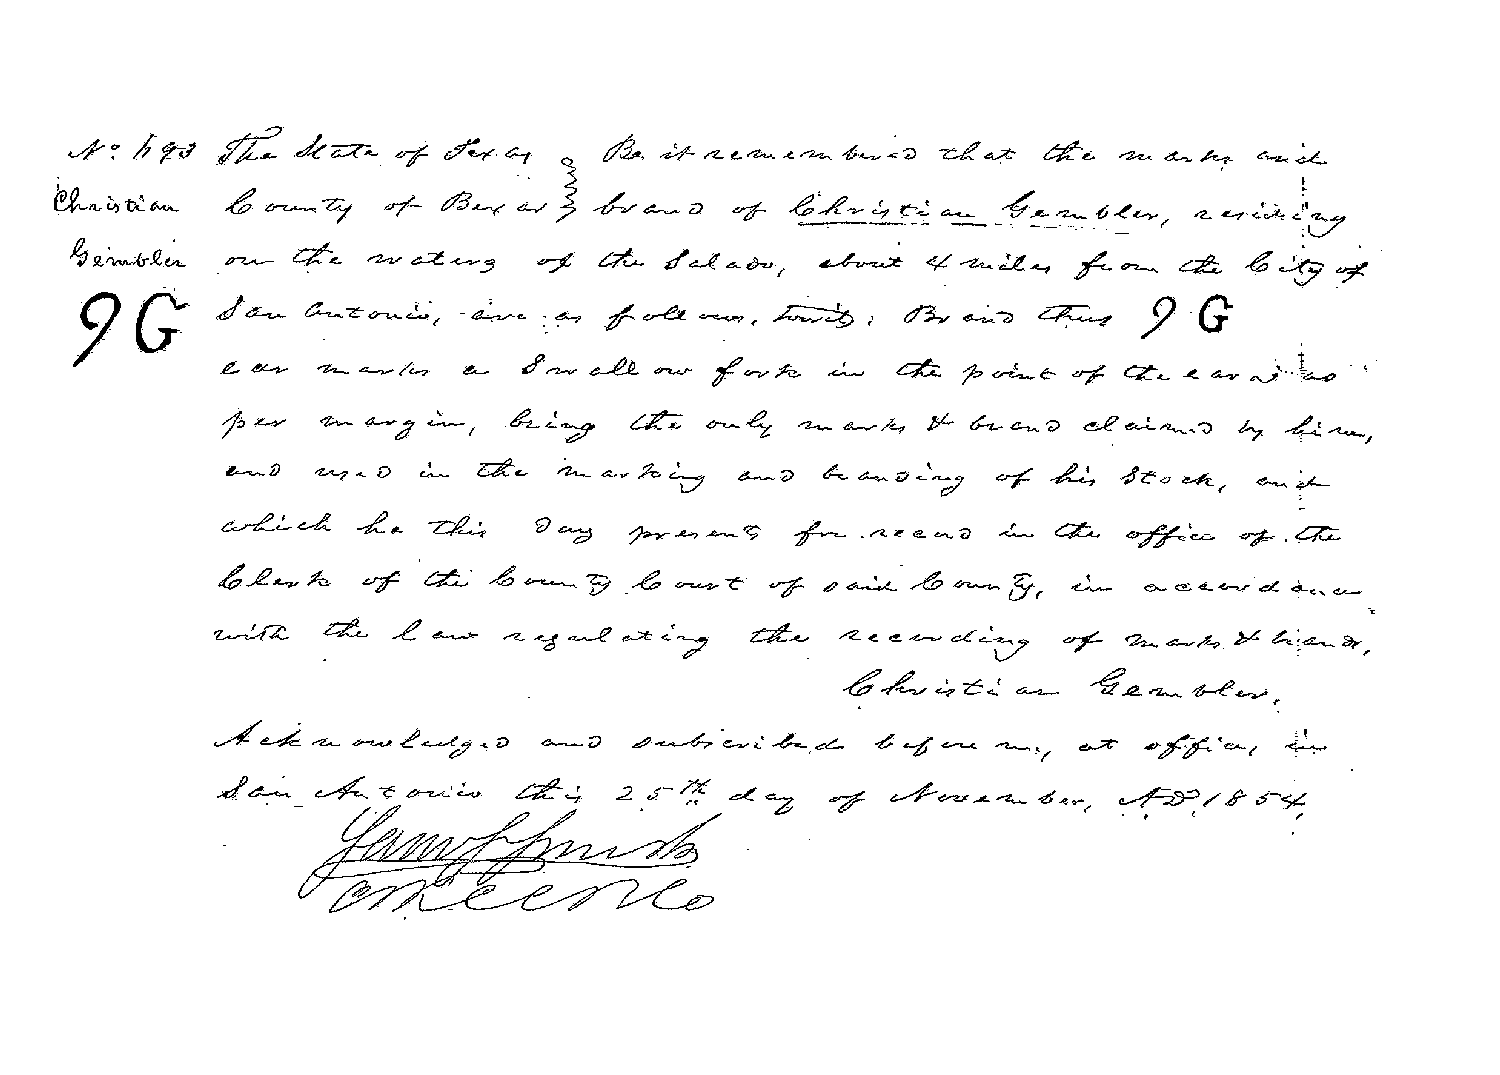 Christian
Gembler
9 G
The State of Texas
County of Bexar
Be it remembered that the marks and
brand of Christian Gembler, residing
on the waters of the Salado, about 4 miles from the City of
San Antonio, are as follows, towit: Brand thus 9 G
ear marks a Swallow fork in the point of the ears as
per margin, being the only marks & brand claimed by him,
and used in the marking and branding of his Stock, and
which he this day presents for record in the office of the
Clerk of the County Court of said County, in accordance
with the law regulating the recording of marks & brands,
Christian Gembler,
Acknowledged and subscribed before me, at office, in
San Antonio this 25th day of November, AD 1854,